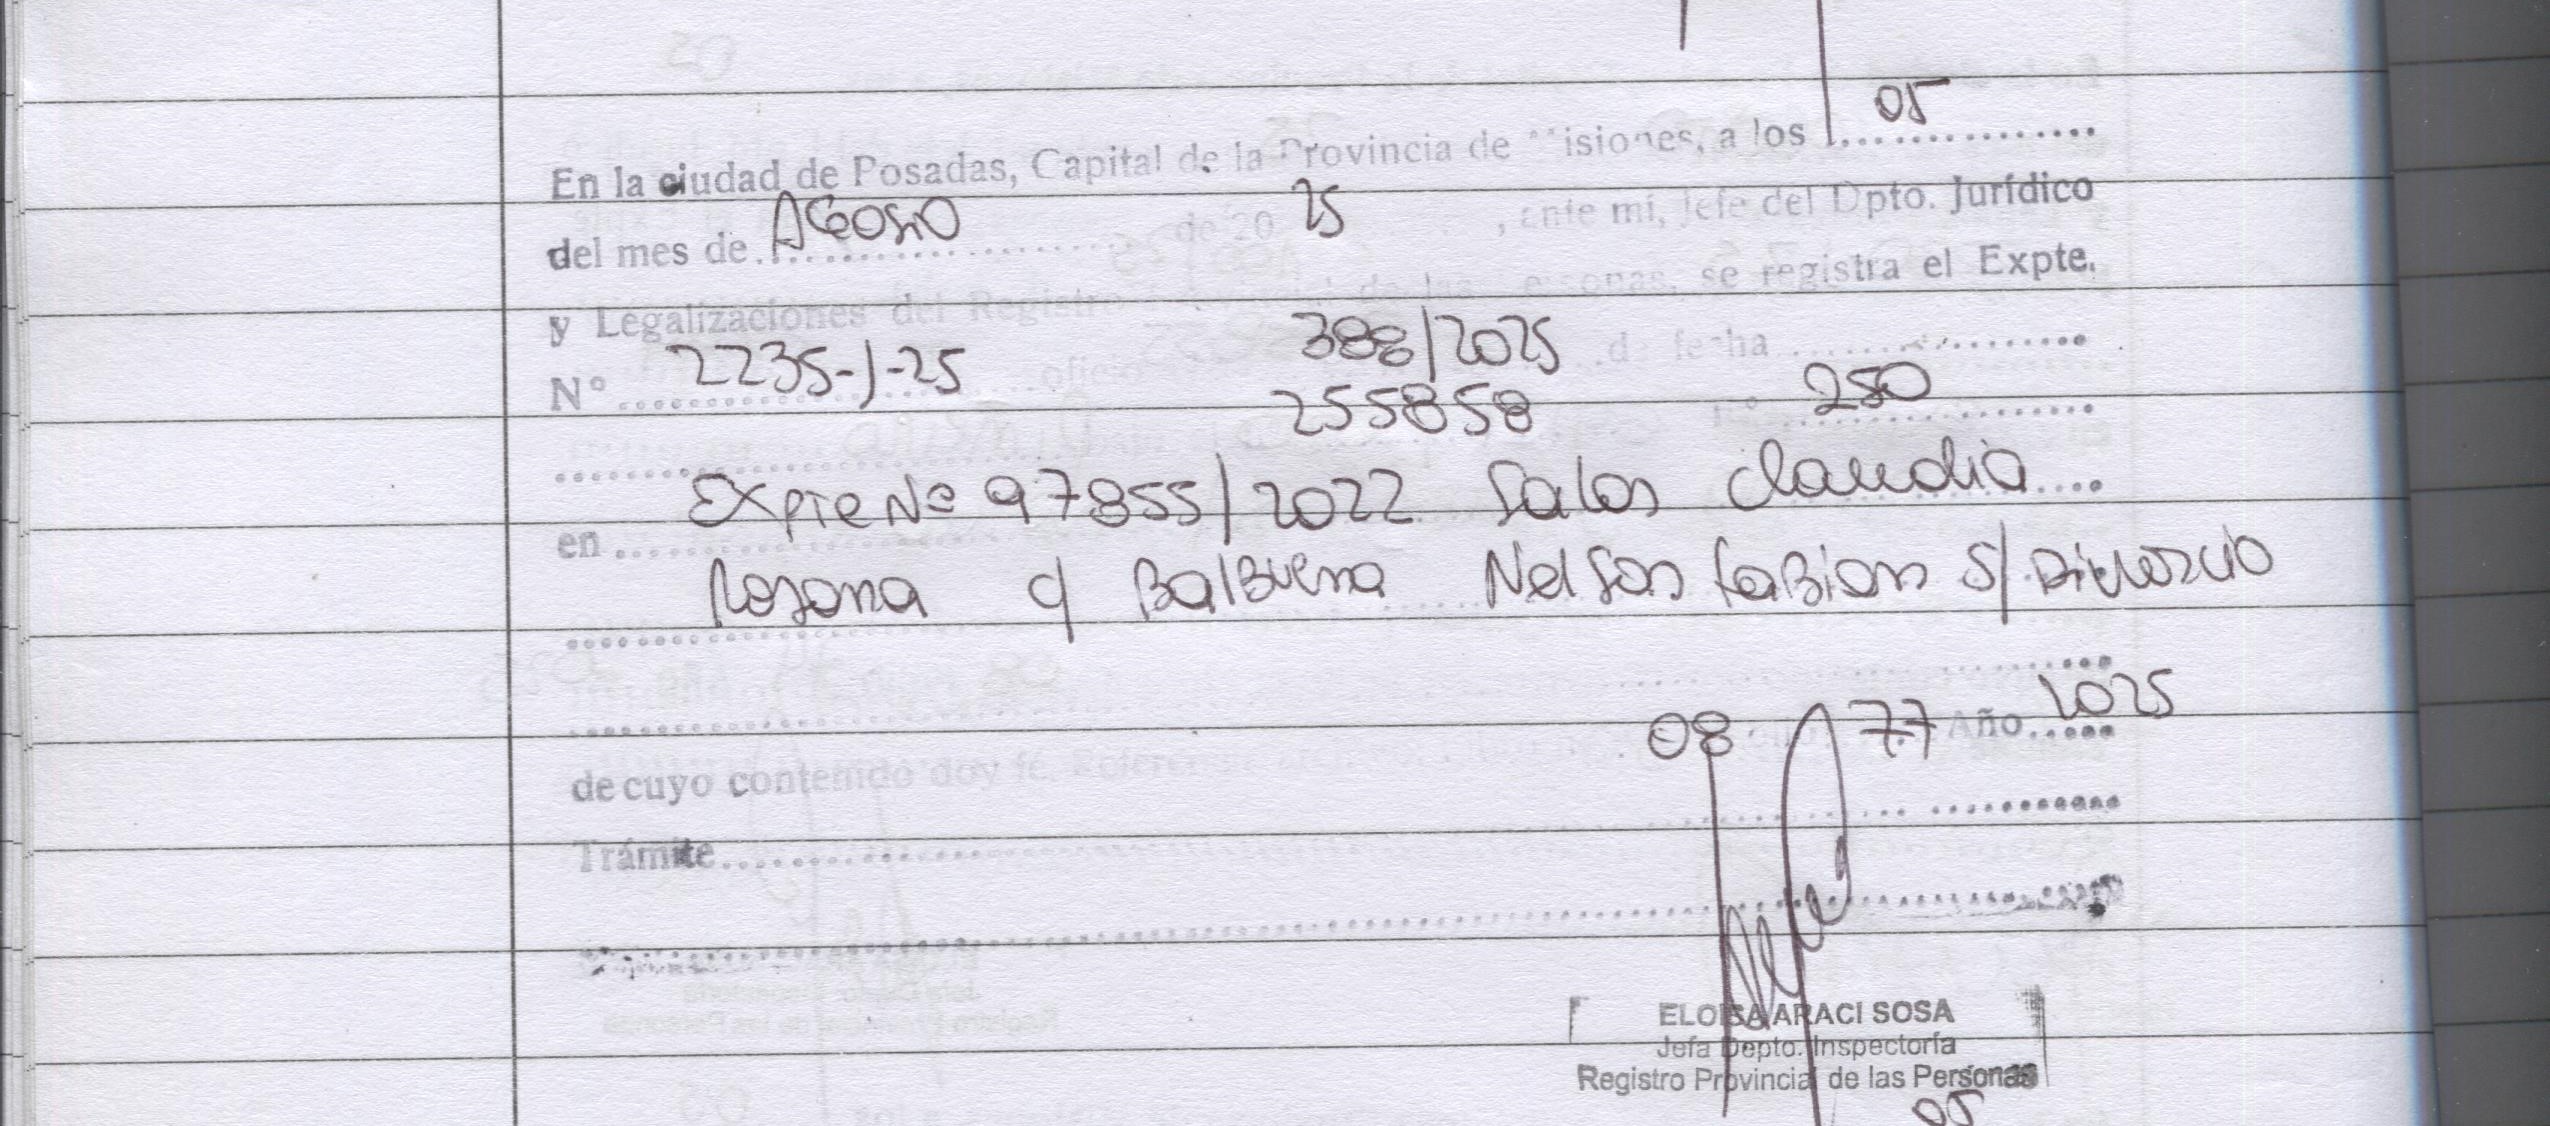 En la ciudad de Posadas, Capital de la Provincia de Misiones, a los 05
del mes de AGOSTO de 20 25, ante mí, Jefe del Dpto. Jurídico
y Legalizaciones del Registro Provincial de las Personas, se registra el Expte.
N° 2235-J-25 oficio 388/2025 de fecha
255858 n° 250
en Expte Nº 97855/2022 Salas Claudia
Rosana c/ Balbuena Nelson Fabian s/ Divorcio
08 77 Año 2025
de cuyo contenido doy fe. Referencia
Trámite
ELOISA ARACI SOSA
Jefa Depto. Inspectoría
Registro Provincial de las Personas
05